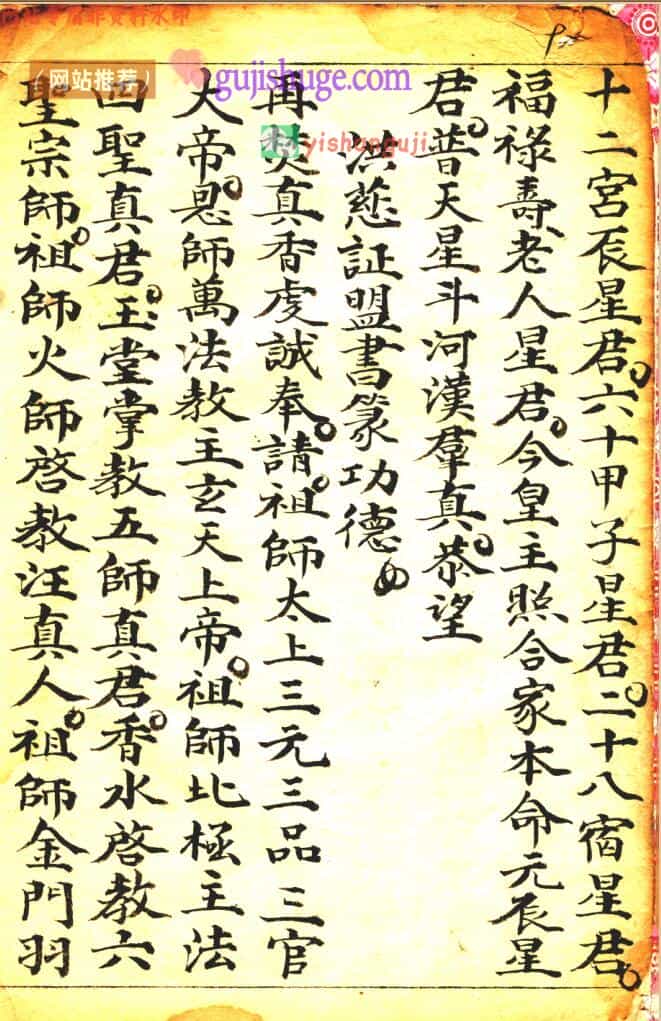 十二宮辰星君。六十甲子星君。二十八宿星君。
福祿壽老人星君。今皇主照合家本命元辰星
君。普天星斗河漢羣真。恭望
洪慈証盟書篆功德。
再焚真香虔誠奉。請。祖師太上三元三品三官
大帝。恩師萬法教主玄天上帝。祖師北極主法
四聖真君。玉堂掌教五師真君。香水啓教六
聖宗師。祖師火師啓教汪真人。祖師金門羽
(网站推荐)
gujishuge.com
yishanguji